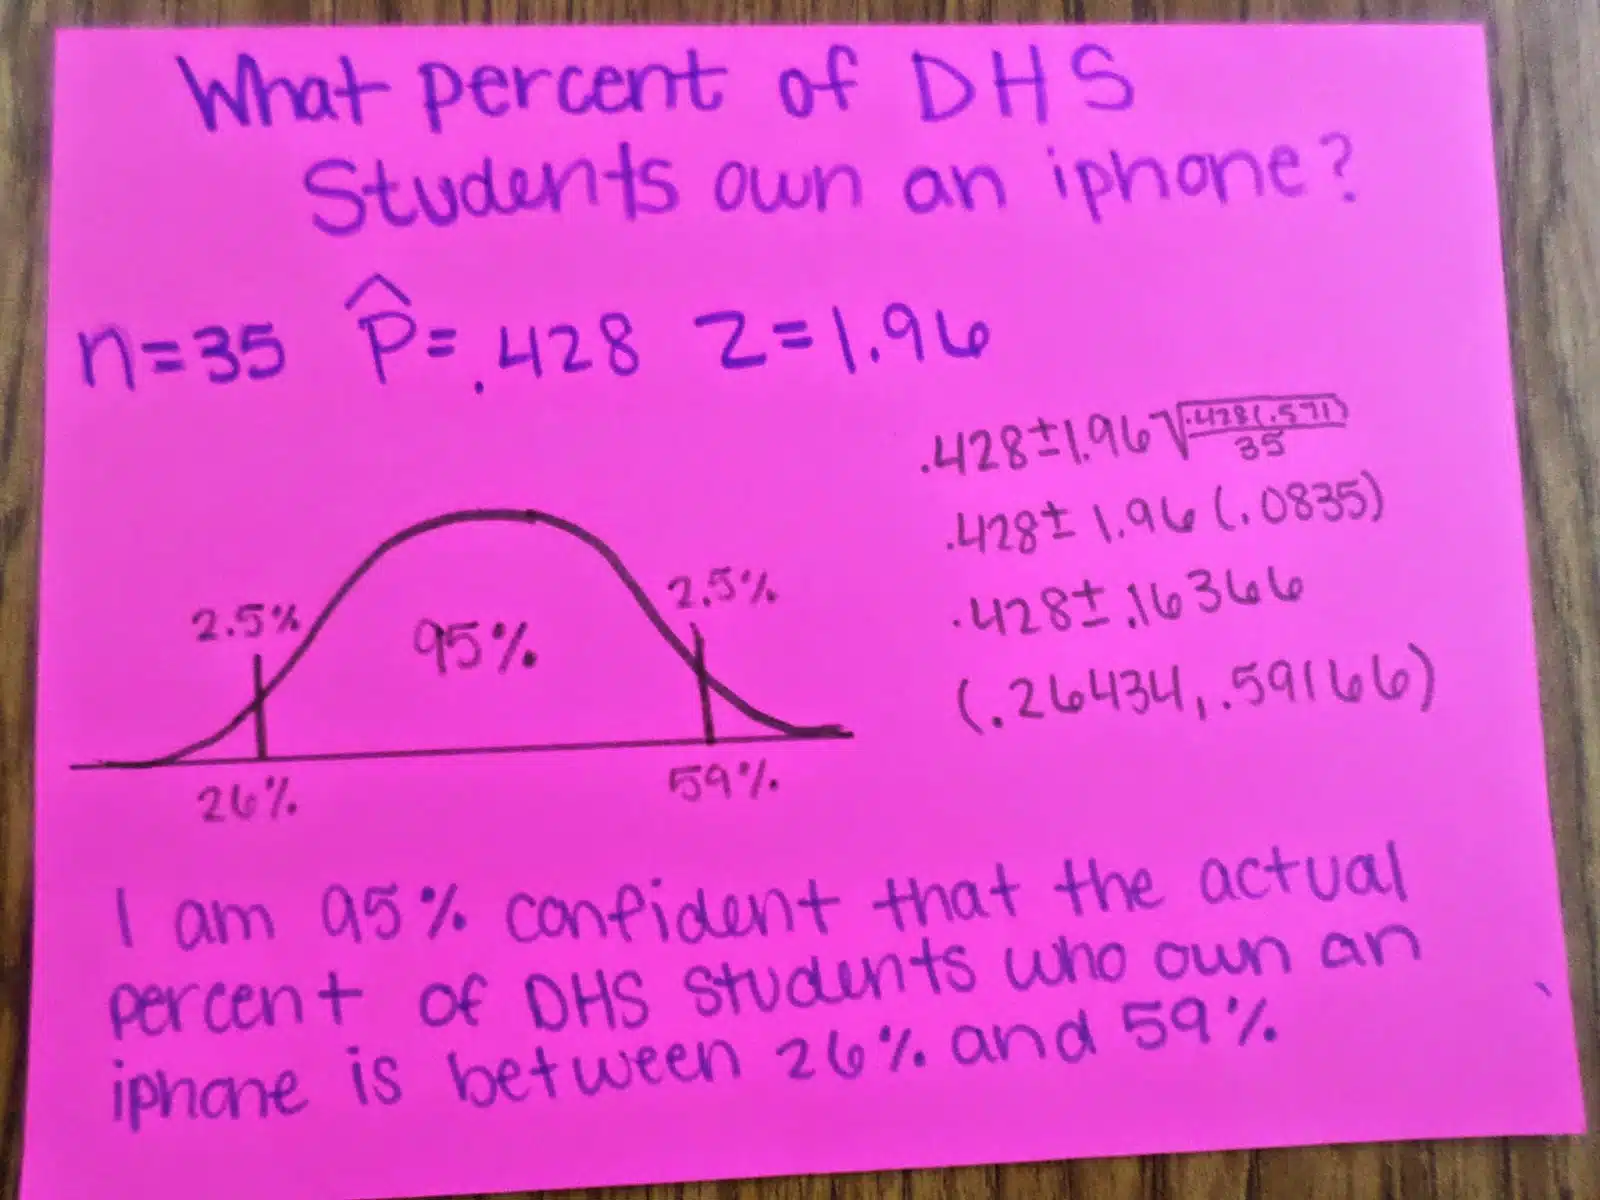 What percent of DHS
Students own an iphone?
n=35 p̂=.428 Z=1.96
.428±1.96√.428(.571)/35
.428±1.96(.0835)
.428±.16366
(.26434,.59166)
2.5% 95% 2.5%
26% 59%
I am 95% confident that the actual
percent of DHS students who own an
iphone is between 26% and 59%